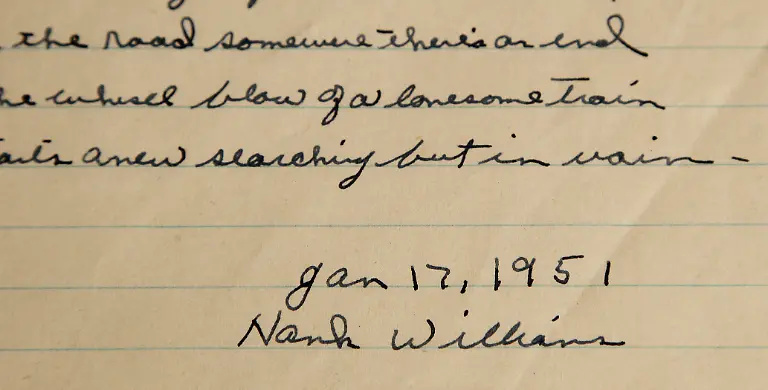 the road somewere there's an end
he whisel blow of a lonesome train
anew searching but in vain -
Jan 17, 1951
Hank Williams